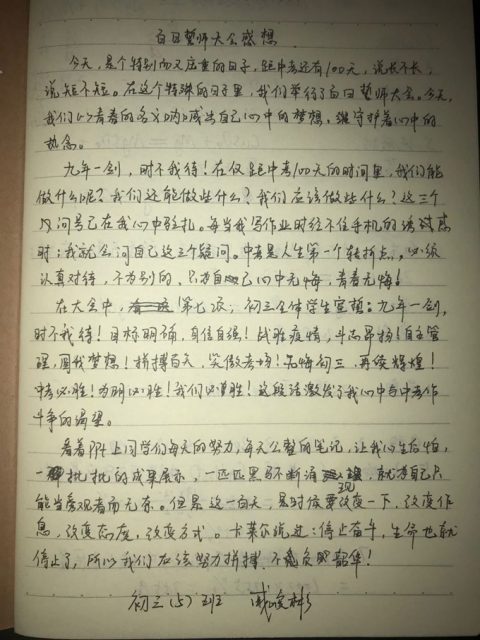 百日誓师大会感想
今天，是个特别而又庄重的日子，距中考还有100天，说长不长，
说短不短。在这个特殊的日子里，我们举行了百日誓师大会。今天，
我们以青春的名义呐喊出自己心中的梦想，继守护着心中的
热念。
九年一剑，时不我待！在仅距中考100天的时间里，我们能
做什么呢？我们还能做些什么？我们应该做些什么？这三个
问号已在我心中驻扎。每当我写作业时经不住手机的诱惑
时；我就会问自己这三个疑问。中考是人生第一个转折点，必须
认真对待，不为别的、只为自己心中无悔，青春无悔！
在大会中，第七项，初三全体学生宣誓：九年一剑，
时不我待！目标明确，自信自强！战胜疫情，斗志昂扬！自主管
理，圆我梦想！拼搏百天，笑傲考场！无悔初三，再续辉煌！
中考必胜！为明必胜！我们必胜！这段话激发了我心中与中考作
斗争的渴望。
看着群上同学们每天的努力，每天公整的笔记，让我生后怕，
一批批的成果展示，一匹匹黑马不断涌现，就凭自己只
能当旁观者而无奈。但是这一百天，是时候要改变一下，改变作
息，改变态度，改变方式。卡莱尔说过：停止奋斗，生命也就
停止了，所以我们应该努力拼搏，不负韶华！
初三（5）班 戚峻彬